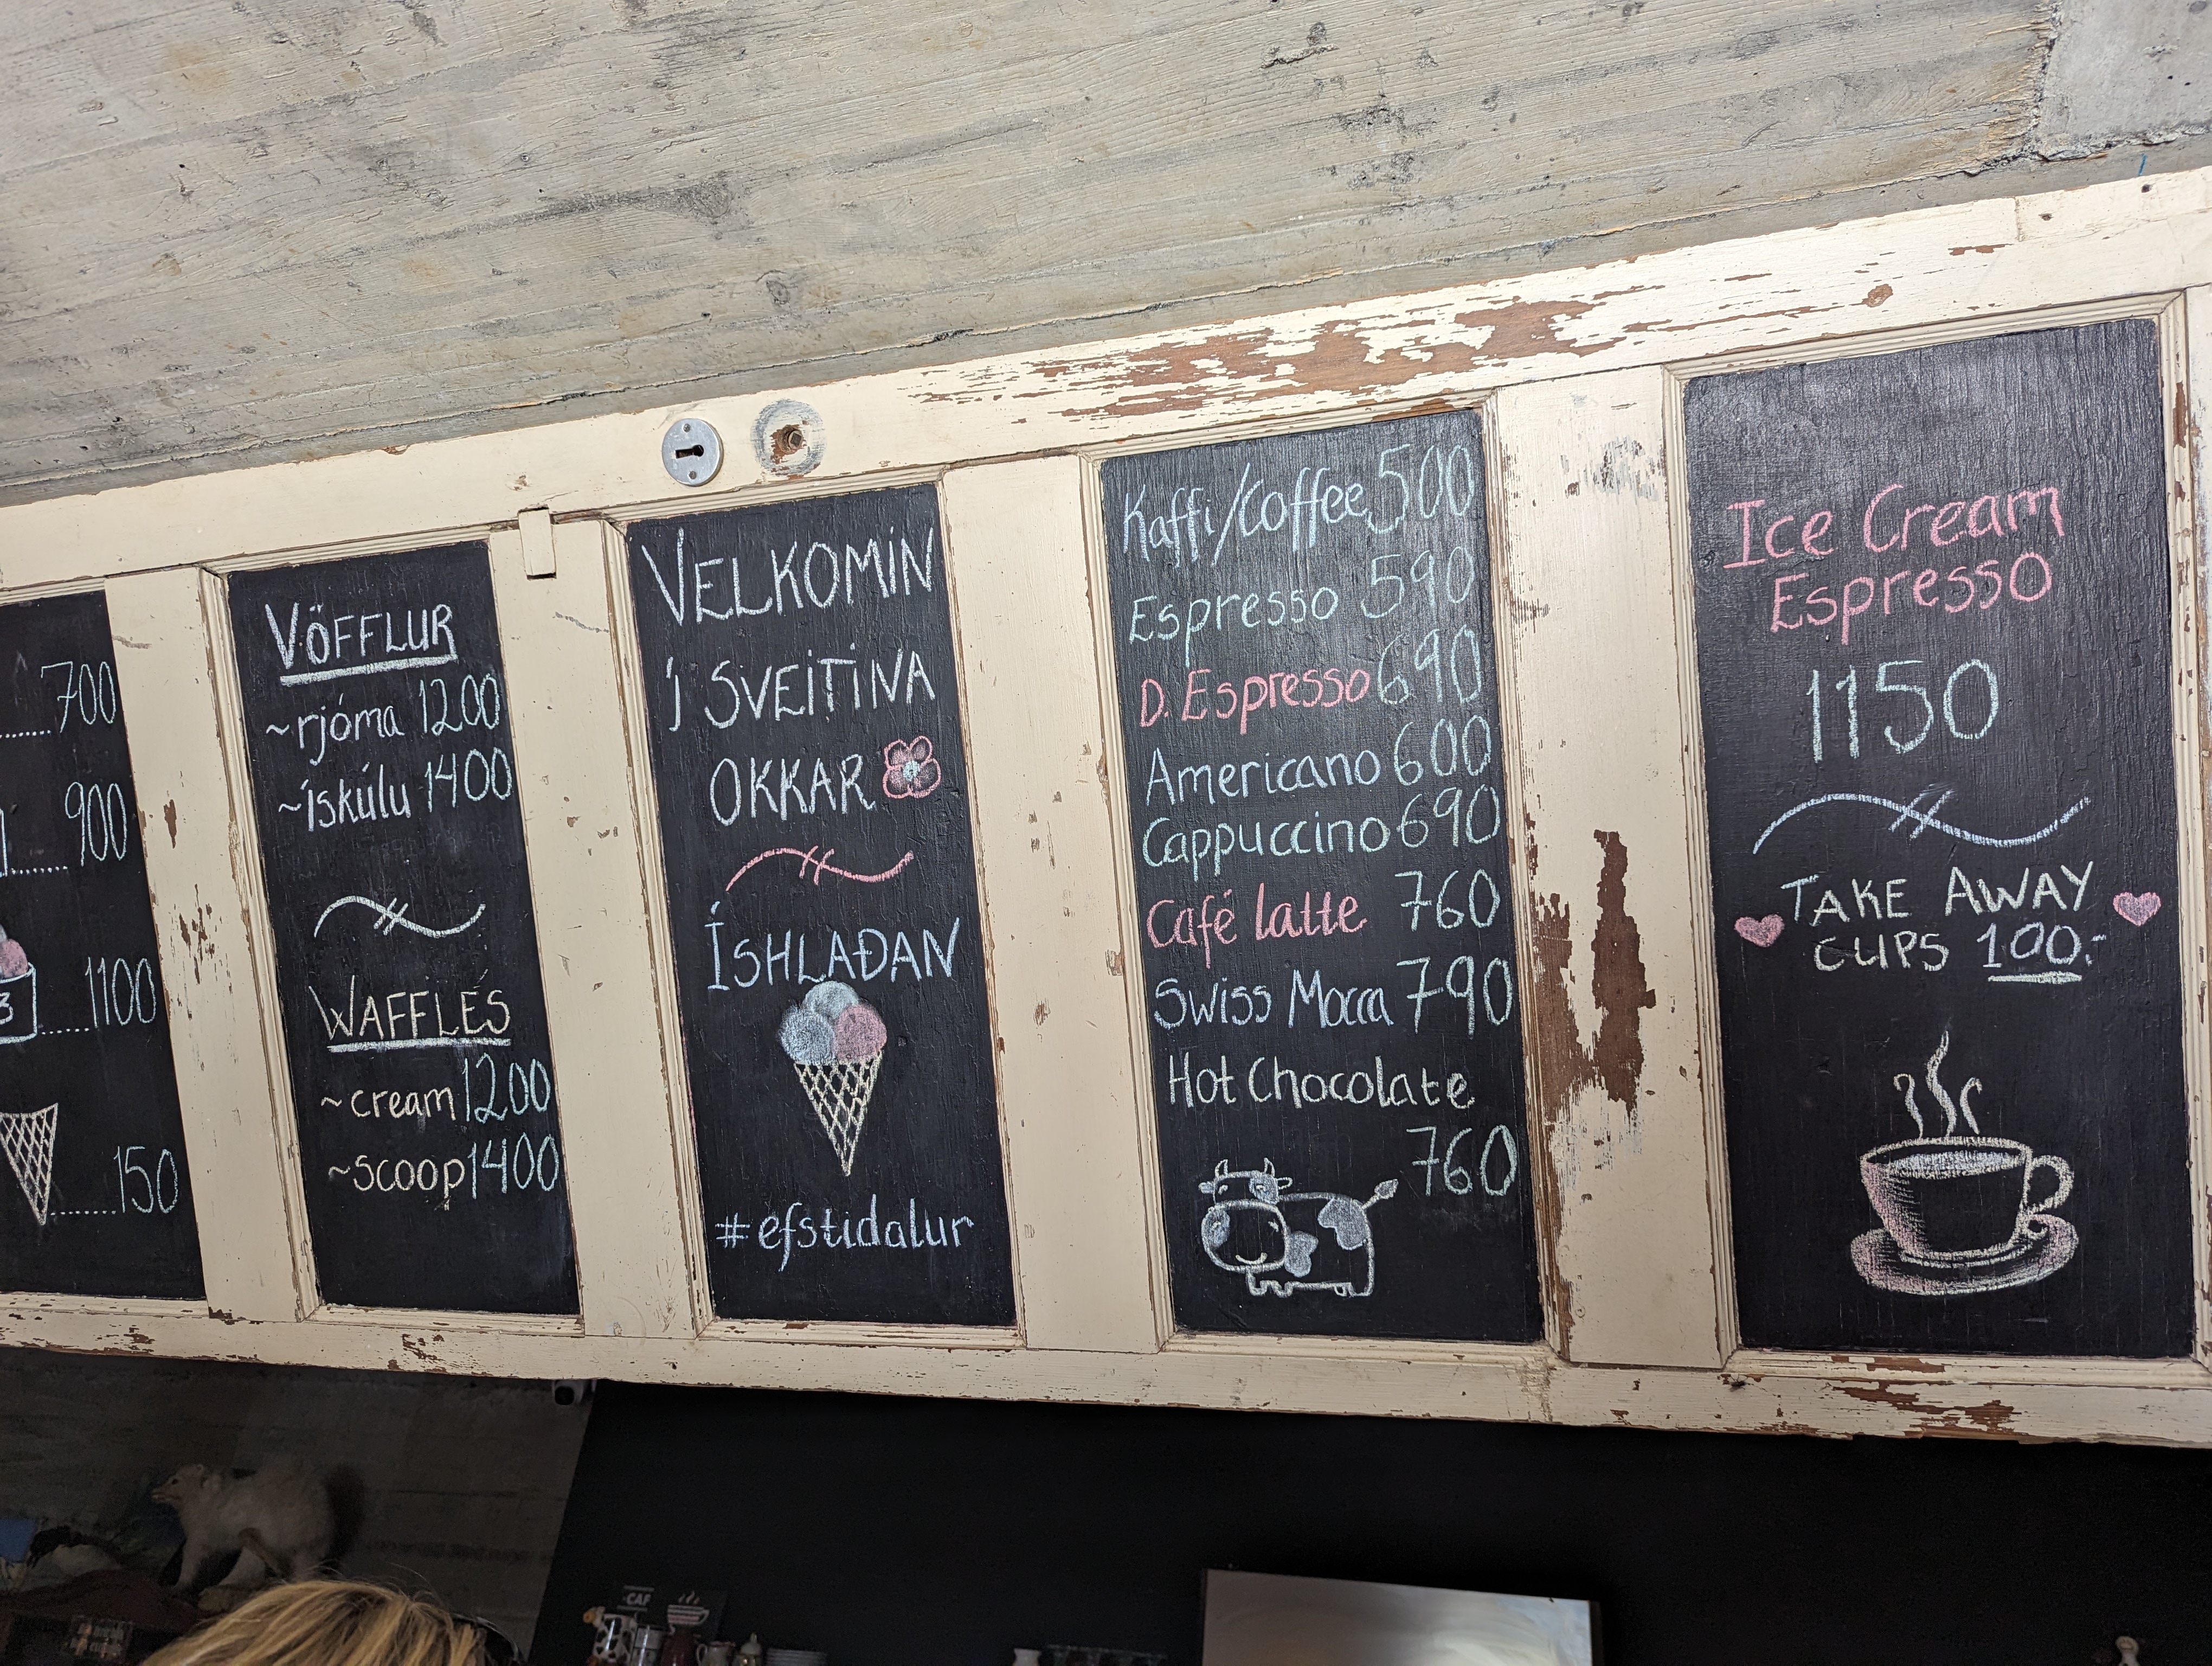 .....700
.....900
3.....1100
.......150
VÖFFLUR
~rjóma 1200
~ískúlu 1400
WAFFLES
~cream 1200
~scoop 1400
VELKOMIN
Í SVEITINA
OKKAR
ÍSHLAÐAN
#efstidalur
Kaffi/Coffee 500
Espresso 590
D. Espresso 690
Americano 600
Cappuccino 690
Café latte 760
Swiss Mocca 790
Hot Chocolate
760
Ice Cream
Espresso
1150
TAKE AWAY
CUPS 100.-
CAF